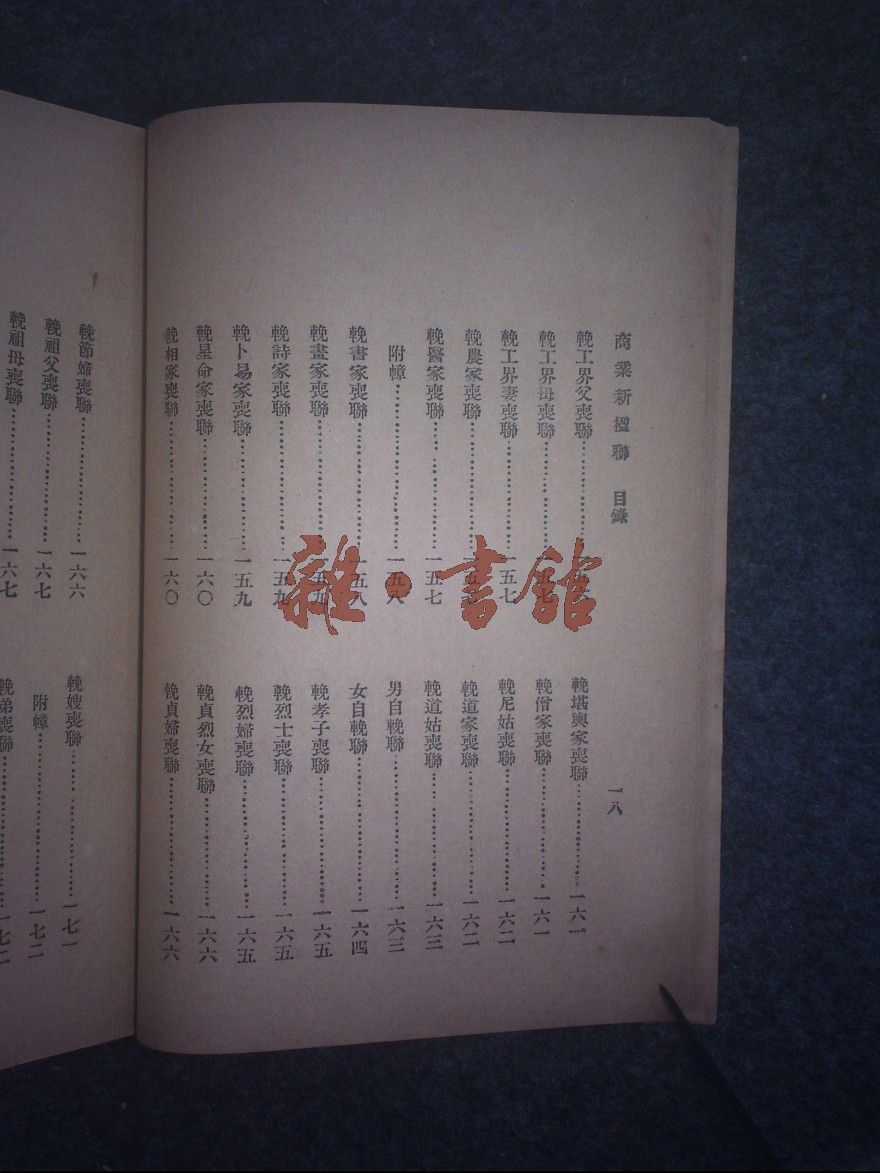 商業新楹聯 目錄 一八
輓工界父喪聯
輓工界母喪聯…………一五七
輓工界妻喪聯…………一五七
輓農家喪聯…………一五七
輓醫家喪聯…………一五七
附幛…………一五八
輓書家喪聯…………一五八
輓畫家喪聯…………一五九
輓詩家喪聯…………一五九
輓卜易家喪聯…………一五九
輓星命家喪聯…………一六〇
輓相家喪聯…………一六〇
輓堪輿家喪聯…………一六一
輓僧家喪聯…………一六一
輓尼姑喪聯…………一六二
輓道家喪聯…………一六二
輓道姑喪聯…………一六三
男自輓聯…………一六三
女自輓聯…………一六四
輓孝子喪聯…………一六五
輓烈士喪聯…………一六五
輓烈婦喪聯…………一六五
輓貞烈女喪聯…………一六六
輓貞婦喪聯…………一六六
輓節婦喪聯…………一六六
輓祖父喪聯…………一六七
輓祖母喪聯…………一六七
輓嫂喪聯…………一七一
附幛…………一七二
輓弟喪聯…………一七二
雜·書館